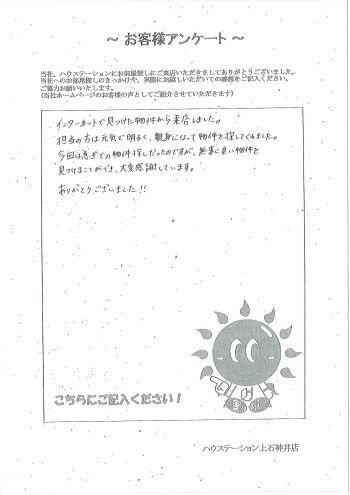 ～ お客様アンケート ～
当社、ハウステーションにお部屋探しにご来店いただきましてありがとうございました。
当社へのお部屋探しのきっかけや、実際にお越しいただいての感想をご記入ください。
ご協力お願いいたします。
（当社ホームページのお客様の声としてご紹介させていただきます）
インターネットで見つけた物件から来店しました。
担当の方は元気で明るく、親身になって物件を探してくれました。
今回は急ぎでの物件探しだったのですが、無事に良い物件を
見つけることができ、大変感謝しています。
ありがとうございました!!
こちらにご記入ください！
ハウステーション上石神井店